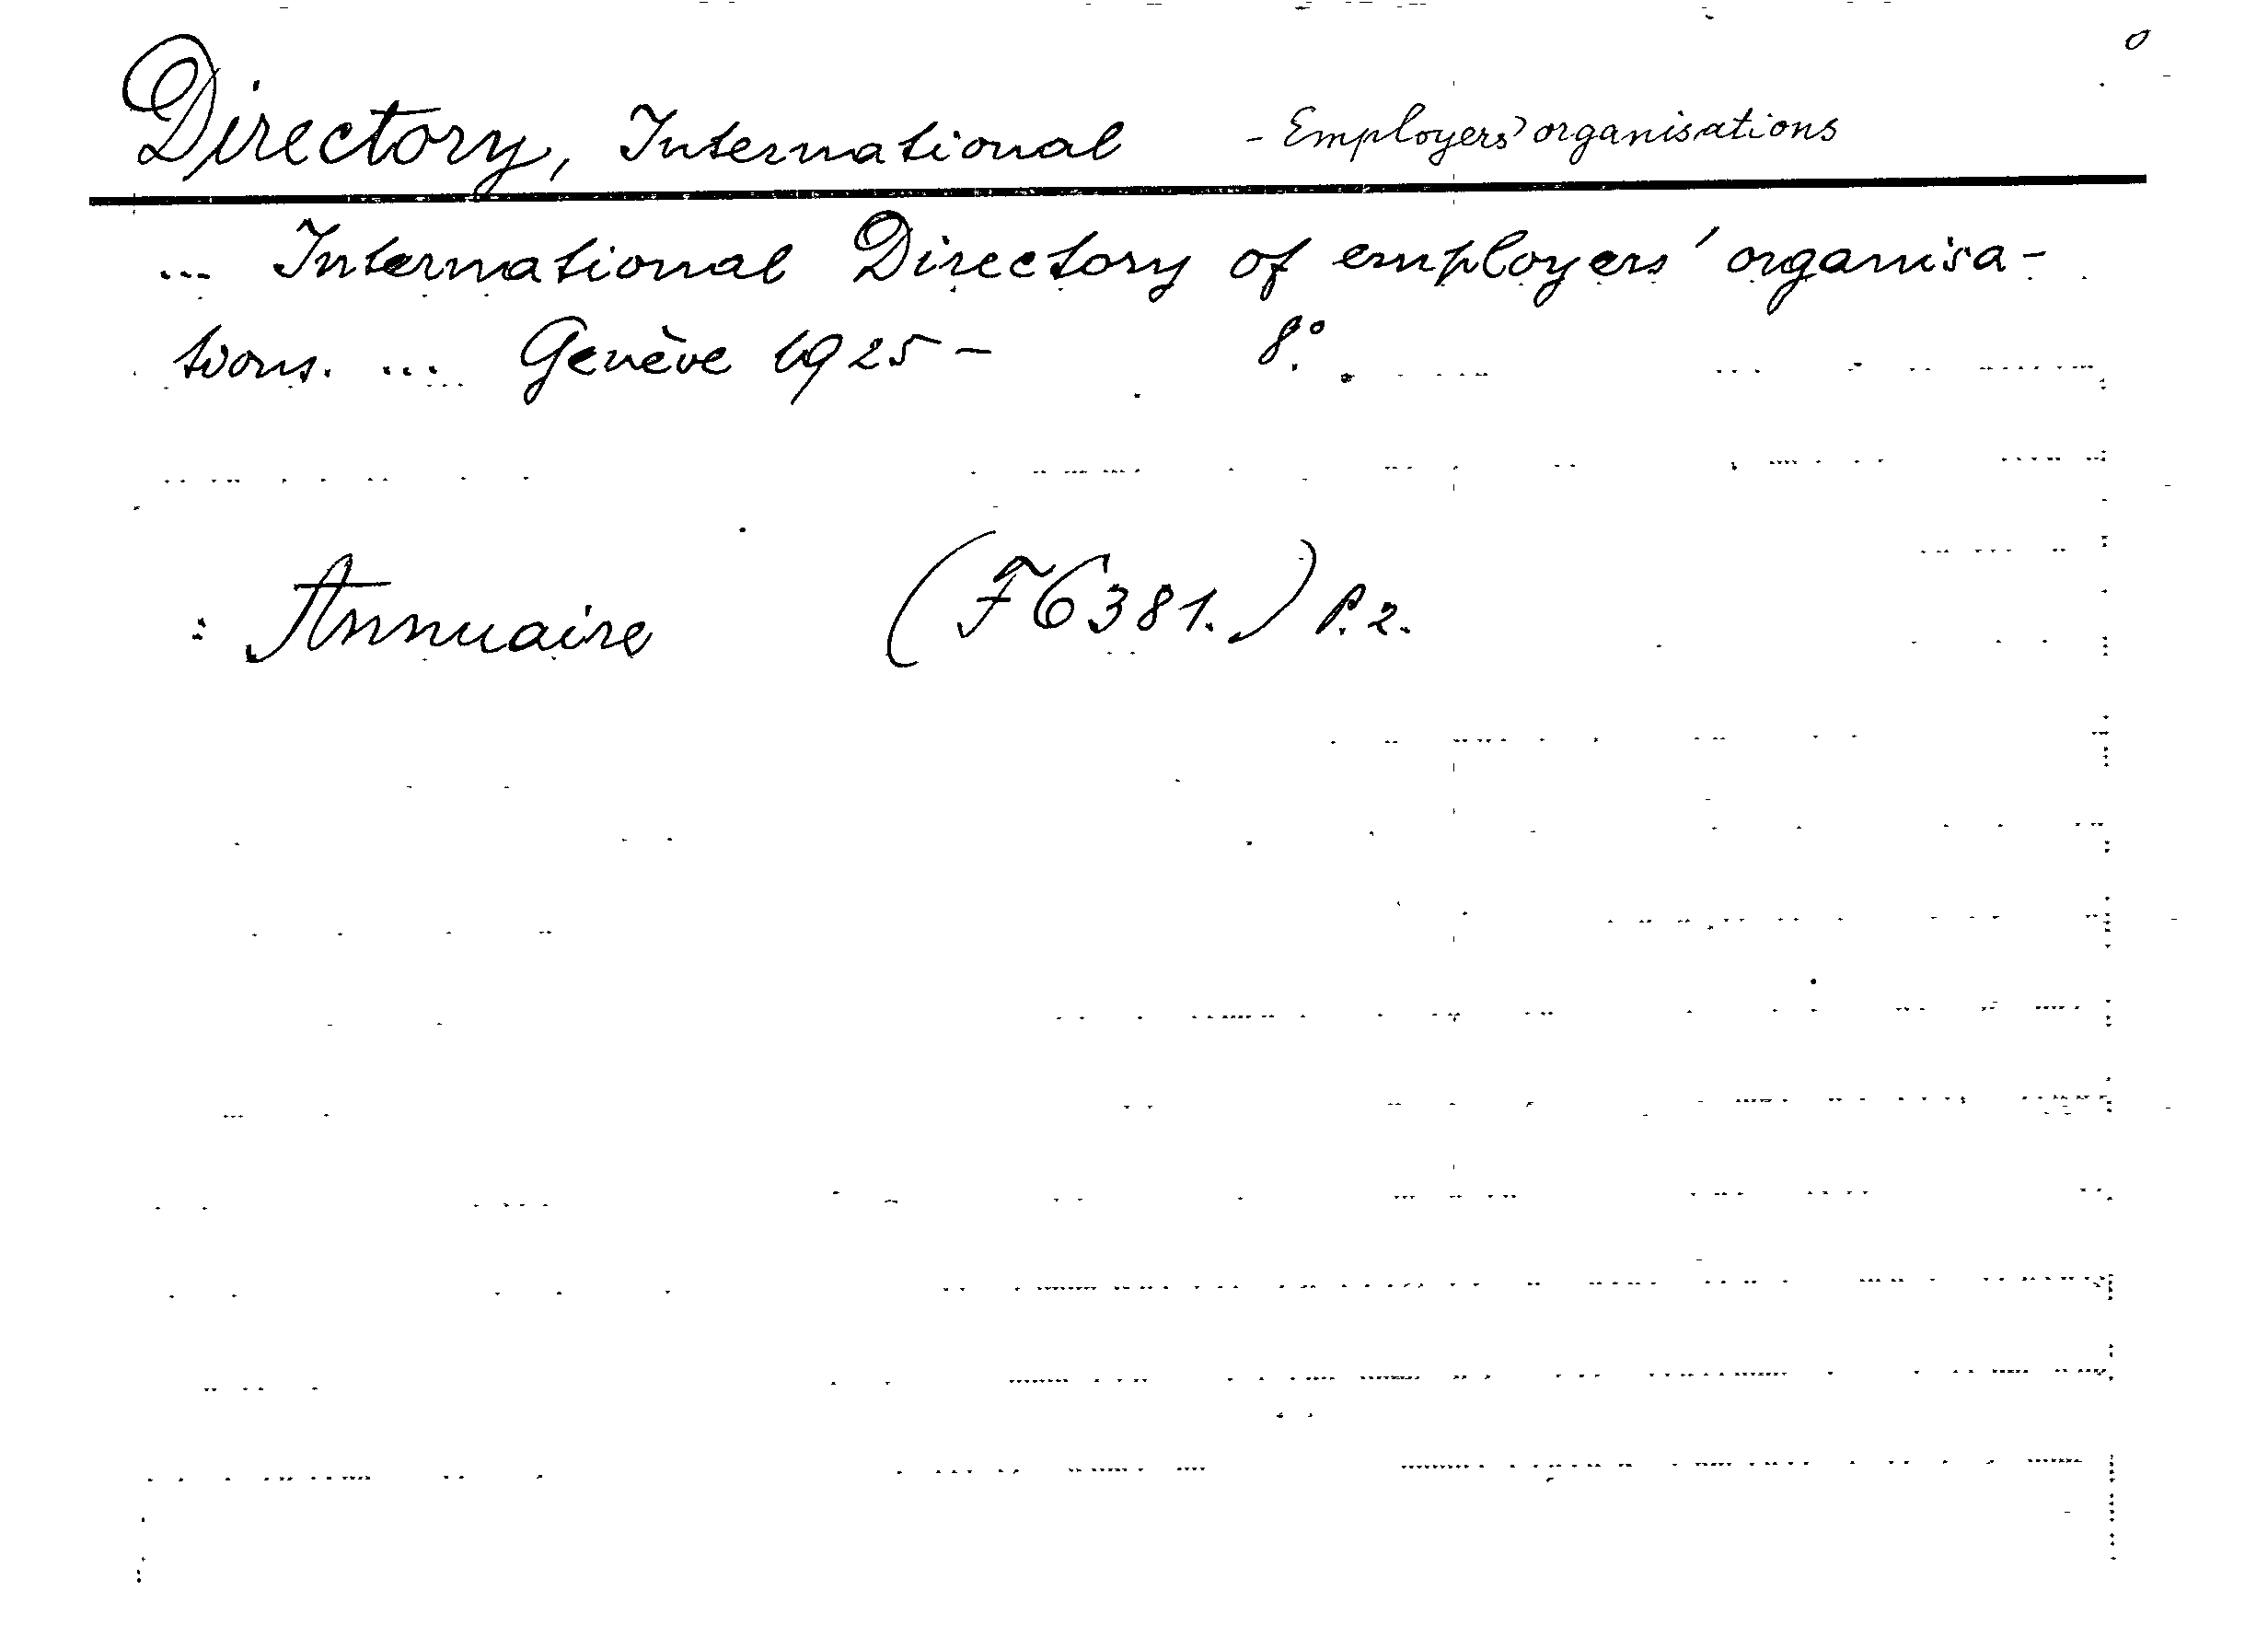 Directory, International - Employers' organisations
... International Directory of employers' organisa-
tions. ... Genève 1925 - 8°.
: Annuaire (F6381.) P.2.